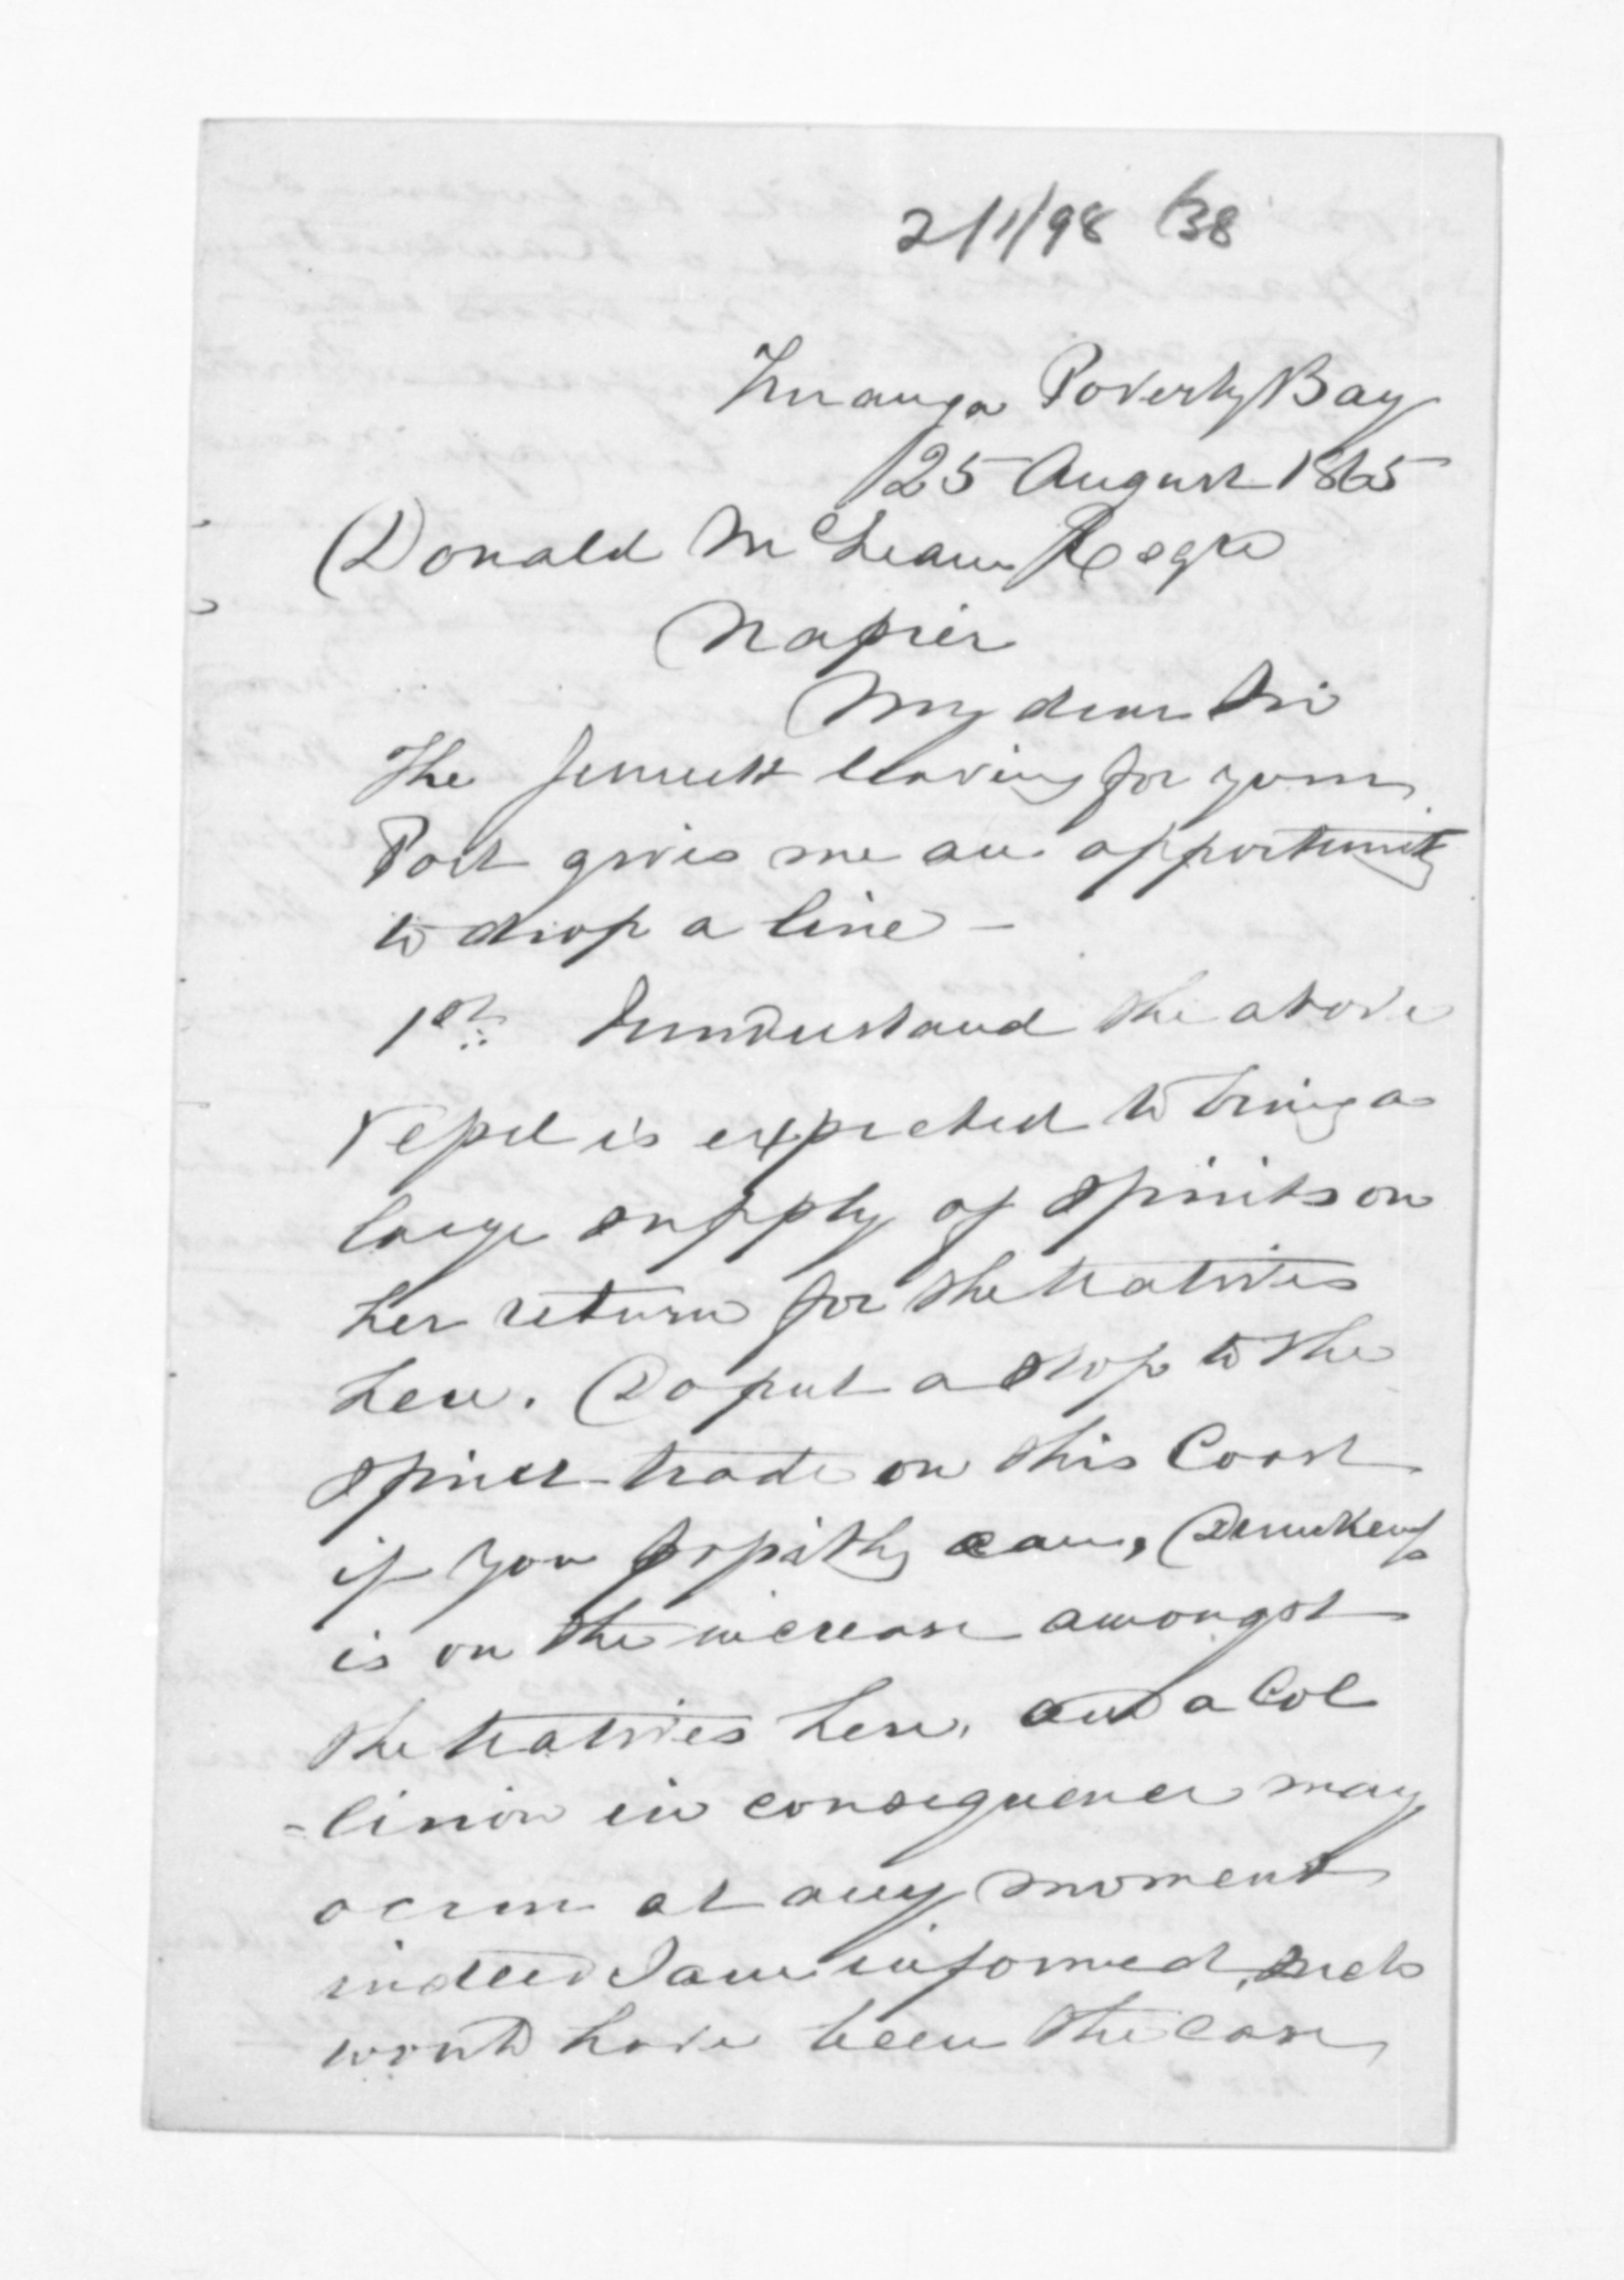 2/1/98 /38
Turanga Poverty Bay
25 August 1865
Donald McLean Esqre
Napier
My dear Sir
The leaving for your
Port gives me an opportunity
to drop a line -
1st. I understand the above
Vessel is expected to bring a
large supply of spirits on
her return for the Natives
here. Do put a stop to the
spirit trade on this Coast
if you possibly can, Drunkenness
is on the increase amongst
the Natives here, and a Col
-lision in consequence may
occur at any moment
indeed I am informed, such
would have been the case